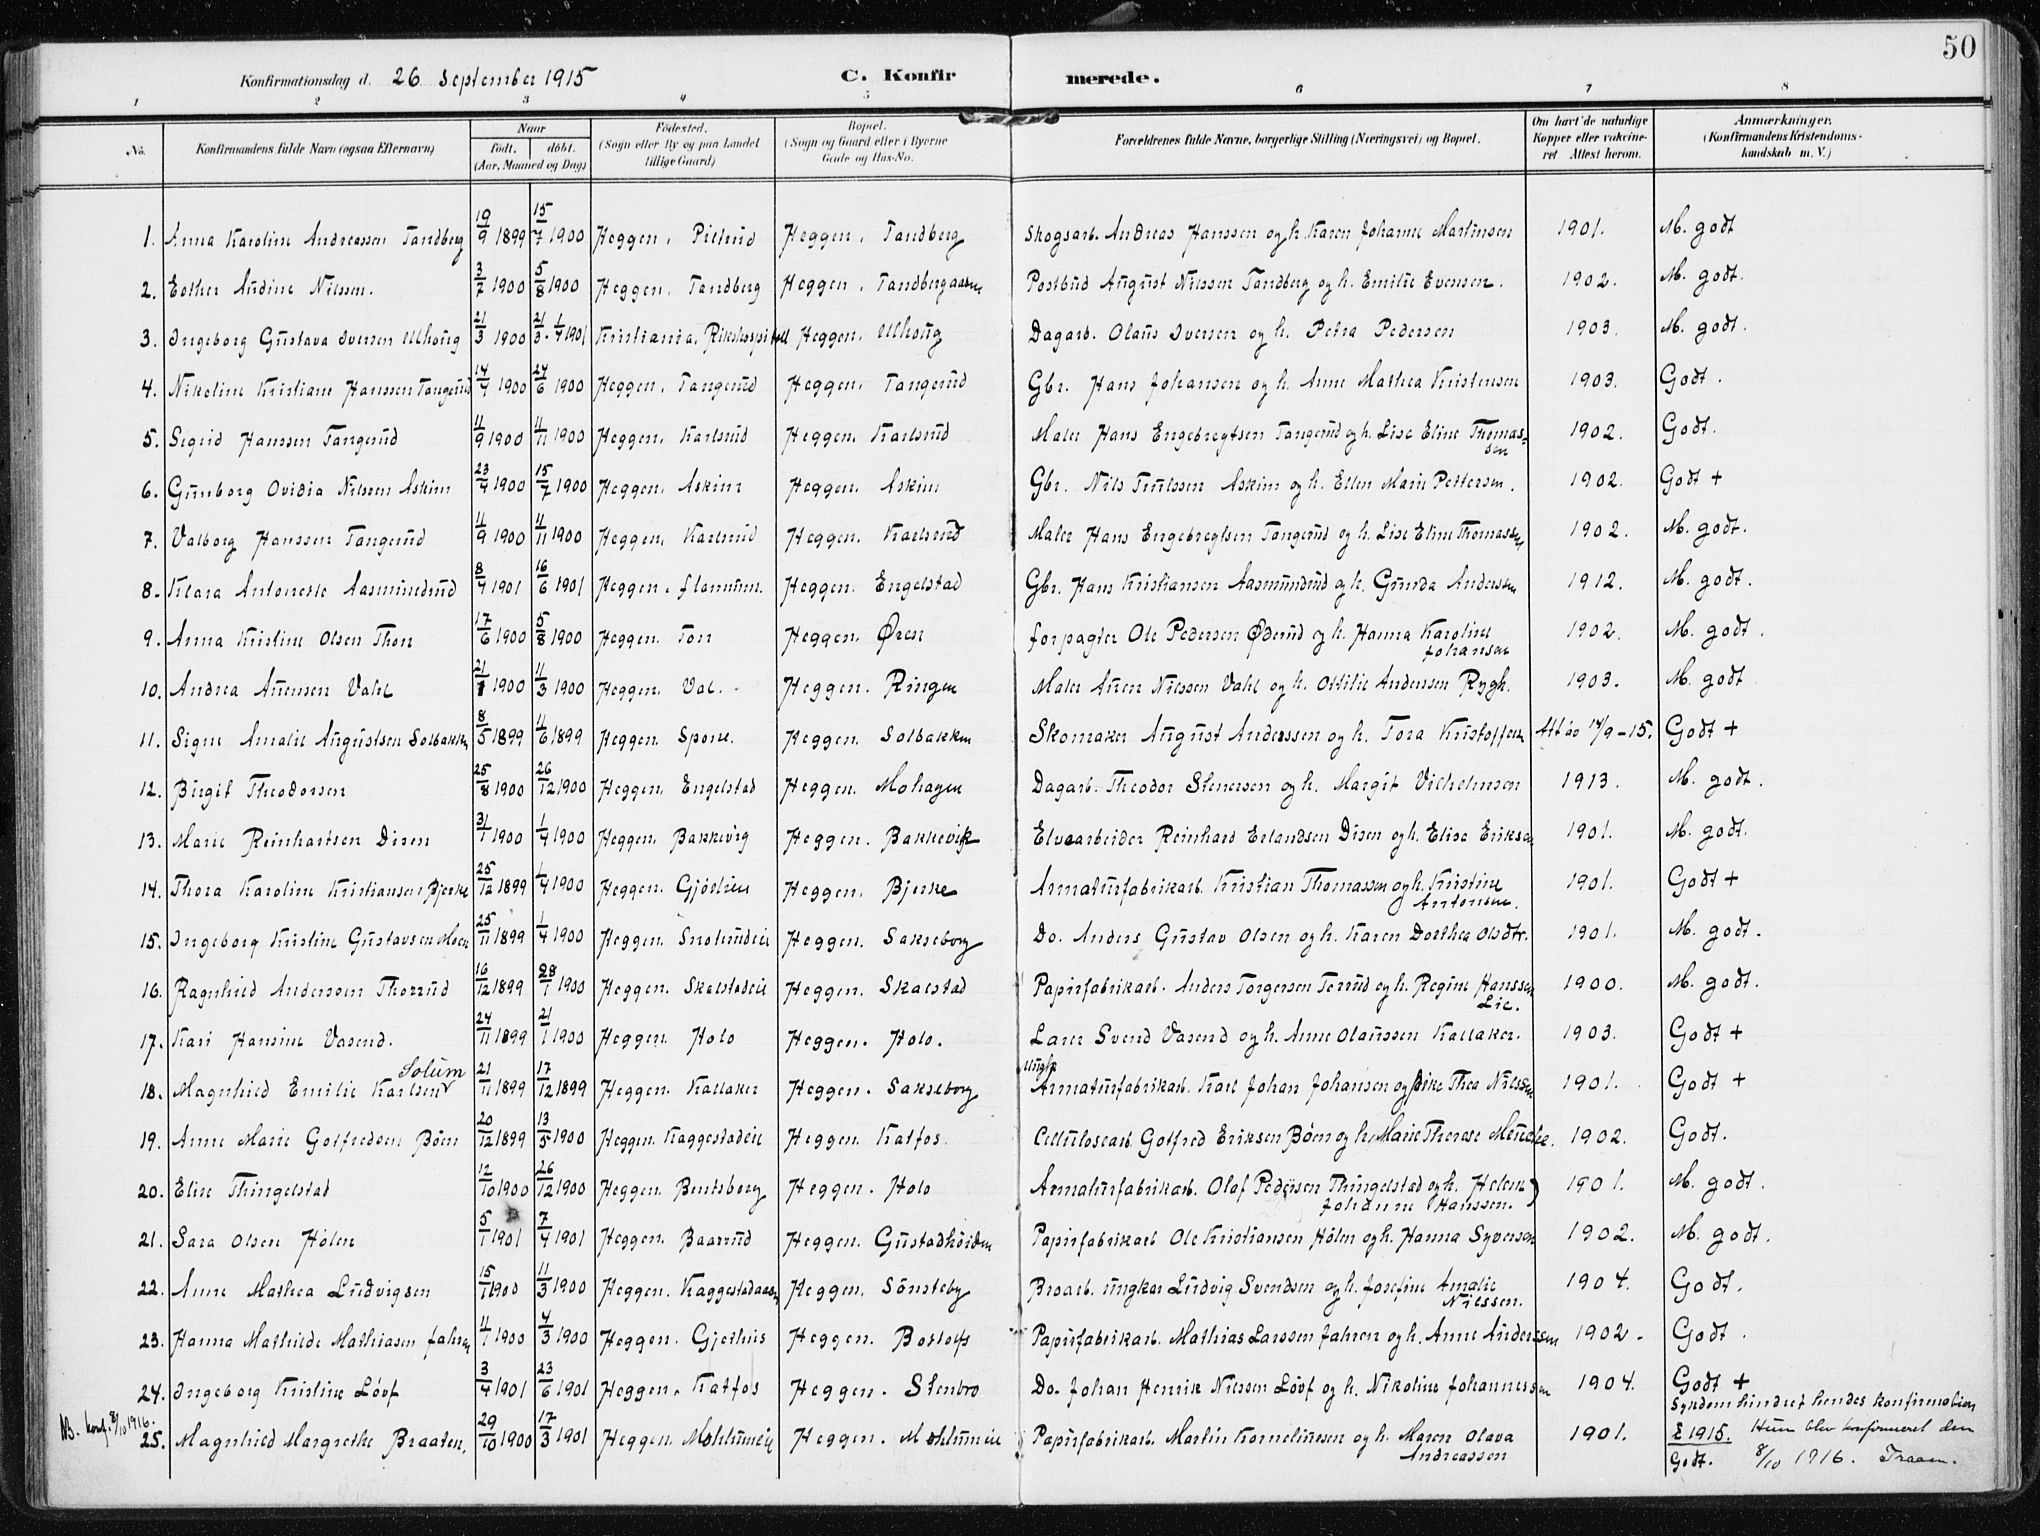 50
Konfirmationsdag d. 26 September 1915
C. Konfir merede.
1 2 3 4 5 6 7 8
No. Konfirmandens fulde Navn (ogsaa Efternavn) Naar født. døbt. (Aar, Maaned og Dag) Fødested. (Sogn eller By og paa Landet tillige Gaard) Bopæl. (Sogn og Gaard eller i Byerne Gade og Hus-No. Forældrenes fulde Navne, borgerlige Stilling (Næringsvei) og Bopæl. Om havt de naturlige Kopper eller vakcineret Attest herom. Anmærkninger. (Konfirmandens Kristendomskundskab m. V.)
1. Anna Karoline Andreassen Tandberg 19/9 1899 15/7 1900 Heggen, Heggen, Tandberg Skogsarb. Andreas Hanssen og h. Karen Johanne Martinsen 1901. M. godt
2. Esther Audine Nilssen. 3/7 1900 5/8 1900 Heggen, Tandberg Heggen, Tandbergaasen Postbud August Nilssen Tandberg og h. Emilie Evensen. 1902. M. godt.
3. Ingeborg Gustava Iversen Ulhoug 21/3 1900 21/3 - 1/4 1901 Kristiania, Rikshospitall Heggen. Ulhoug Dagarb. Olaus Iversen og h. Petra Pedersen 1903. M. godt.
4. Nikoline Kristiane Hanssen Tangerud 14/4 1900 24/6 1900 Heggen, Tangerud Heggen, Tangerud Gbr. Hans Johansen og h. Anne Mathea Kristensen 1903. Godt.
5. Sigrid Hanssen Tangerud 11/9 1900 11/11 1900 Heggen, Karlsrud Heggen, Karlsrud Maler Hans Engebregtsen Tangerud og h. Lise Eline Thomassen 1902. Godt.
6. Gunborg Ovidia Nilssen Askim 23/4 1900 15/7 1900 Heggen, Askim Heggen. Askim Gbr. Nils Truelssen Askim og h. Ellen Marie Pettersen. 1902. Godt +
7. Valborg Hanssen Tangerud 11/9 1900 11/11 1900 Heggen, Karlsrud Heggen. Karlsrud Maler Hans Engebregtsen Tangerud og h. Lise Eline Thomassen 1902. M. godt.
8. Klara Antonette Aasmundrud 8/4 1901 16/6 1901 Heggen, Flannum. Heggen. Engelstad Gbr. Hans Kristiansen Aasmundrud og h. Gunda Andersen 1912. M. godt.
9. Anna Kristine Olsen Thon 17/6 1900 5/8 1900 Heggen. Ton Heggen. Øren forpagter Ole Pedersen Øderud og h. Hanna Karoline Johansen 1902. M. godt.
10. Andrea Auensen Vahl 21/1 1900 11/3 1900 Heggen. Val. Heggen. Ringen Maler Auen Nilssen Vahl og h. Ottilie Anderssen Rygh. 1903. M. godt
11. Signe Amalie Augustsen Solbakken 8/5 1899 11/6 1899 Heggen. Spone. Heggen. Solbakken Skomaker August Anderssen og h. Tora Kristoffersen Att av 14/9-15. Godt +
12. Birgit Theodorsen 25/8 1900 26/12 1900 Heggen. Engelstad Heggen. Mohagen Dagarb. Theodor Stenersen og h. Margit Vilhelmsen 1913. M. godt.
13. Marie Reinhartsen Disen 31/1 1900 1/4 1900 Heggen. Bakkevig Heggen. Bakkevik Elvearbeider Reinhard Erlandsen Disen og h. Elise Eriksen 1901. M. godt.
14. Thora Karoline Kristiansen Bjerke 25/12 1899 1/4 1900 Heggen. Heggen. Bjerke Armaturfabrikarb. Kristian Thomassen og h. Kristine Antonsen. 1901. Godt +
15. Ingeborg Kristine Gustavsen Moen 25/11 1899 1/4 1900 Heggen. Heggen. Sakseborg Do. Anders Gustav Olsen og h. Karen Dorthea Olsdtr. 1901. M. godt.
16. Ragnhild Anderssen Thorrud 16/12 1899 28/1 1900 Heggen. Skalstadeie Heggen. Skalstad Papirfabrikarb. Anders Torgersen Torrud og h. Regine Hanssen Lie. 1900. M. godt.
17. Kari Hansine Vasend. 24/11 1899 21/1 1900 Heggen. Holo Heggen. Holo. Lærer Svend Vasend og h. Anne Olaussen Kallaker. 1903. Godt +
18. Magnhild Emilie Karlsen Solum 21/11 1899 17/12 1899 Heggen. Kallaker Heggen. Sakseborg ungk. Armaturfabrikarb. Karl Johan Johansen og pike Thea Nilssen 1901. Godt +
19. Anne Marie Gotfredsen Bøen 20/12 1899 13/5 1900 Heggen. Kaggestadeie Heggen. Katfos. Cellulosearb. Gotfred Eriksen Bøen og h. Marie Therese 1902. Godt.
20. Elise Thingelstad 12/10 1900 26/12 1900 Heggen. Bentsberg Heggen. Holo Armaturfabrikarb. Olaf Pedersen Thingelstad og h. Helene Johanne Hanssen. 1901. M. godt.
21. Sara Olsen Holen 5/1 1901 7/4 1901 Heggen. Baarrud Heggen. Gustadhøiden Papirfabrikarb. Ole Kristiansen Holen og h. Hanna Syversen 1902. M. godt.
22. Anne Mathea Ludvigsen 15/1 1900 11/3 1900 Heggen. Kaggestadaasen Heggen. Sønsteby Broarb. ungkar Ludvig Svendsen og h. Josefine Amalie Nilssen. 1904. Godt.
23. Hanna Mathilde Mathiasen Jahren 11/1 1900 4/3 1900 Heggen. Gjethus Heggen. Bostofs Papirfabrikarb. Mathias Larssen Jahren og h. Anne Anderssen 1902. Godt.
24. Ingeborg Kristine Løvf 3/4 1901 23/6 1901 Heggen. Katfos Heggen. Stenbro Do. Johan Henrik Nilssen Løvf og h. Nikoline Johannessen 1904. Godt +
NB. konf. 8/10 1916.
25. Magnhild Margrethe Braaten. 29/10 1900 17/3 1901 Heggen. Heggen. Papirfabrikarb. Martin Korneliussen og h. Maren Olava Andreassen 1901. Sygdom hindret hendes konfirmation i 1915. Hun blev konfirmeret den 8/10 1916. Traaen.
Godt.